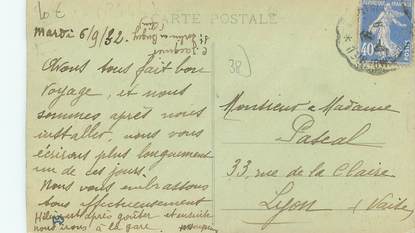 10 €
CARTE POSTALE
Mardi 6/9/32.
38
40
Avons tous fait bon
voyage, et nous
sommes après nous
installer, nous vous
écrirons plus longuement
un de ces jours.
Nous vous embrassons
tous affectueusement
après goûter et ensuite
nous irons à la gare.
Monsieur Madame
Pascal
33, rue de la Claire
Lyon (Vaise)